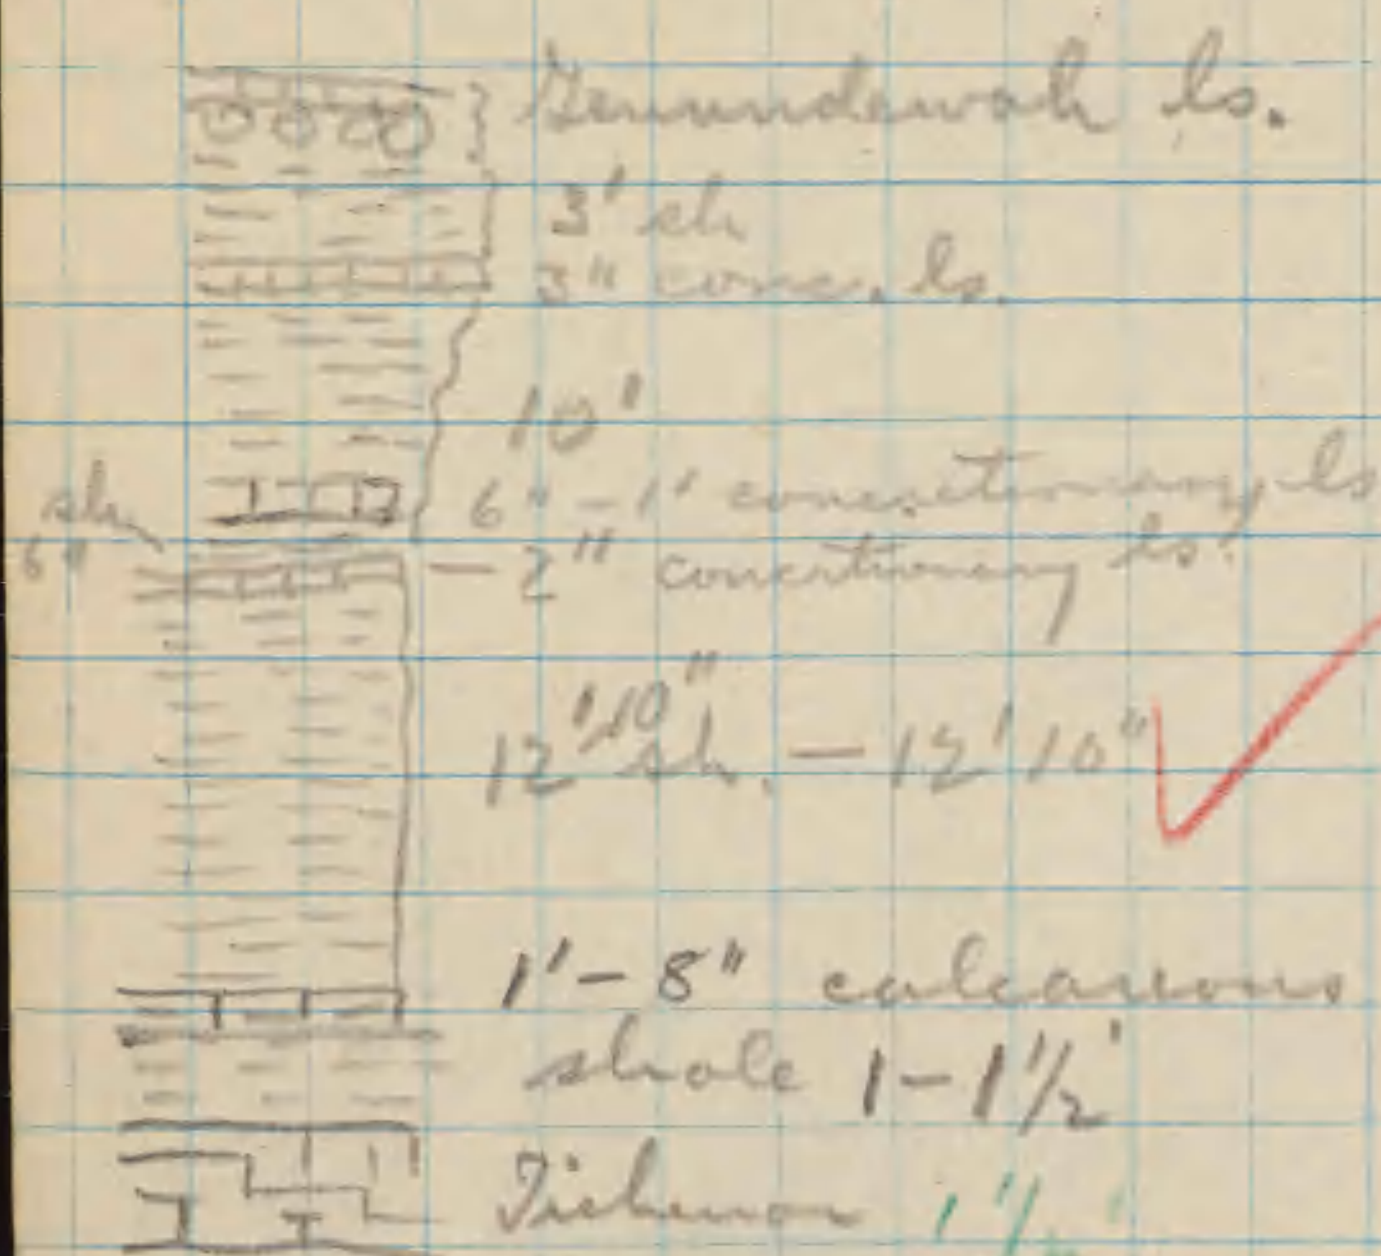 Genundewah ls.
3' sh
3" conc. ls.
10'
sh
6"
6" - 1' concretionary ls
— 2" concretionary ls.
12' 10" sh. — 12' 10" ✓
1' - 8" calcareous
shale 1 - 1 1/2'
Tichenor 1 1/2'